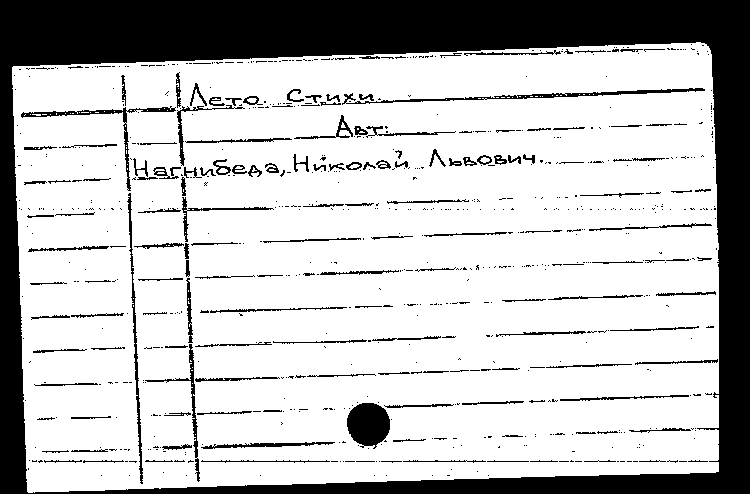 Лето. Стихи.
Авт:
Нагнибеда, Николай Львович.